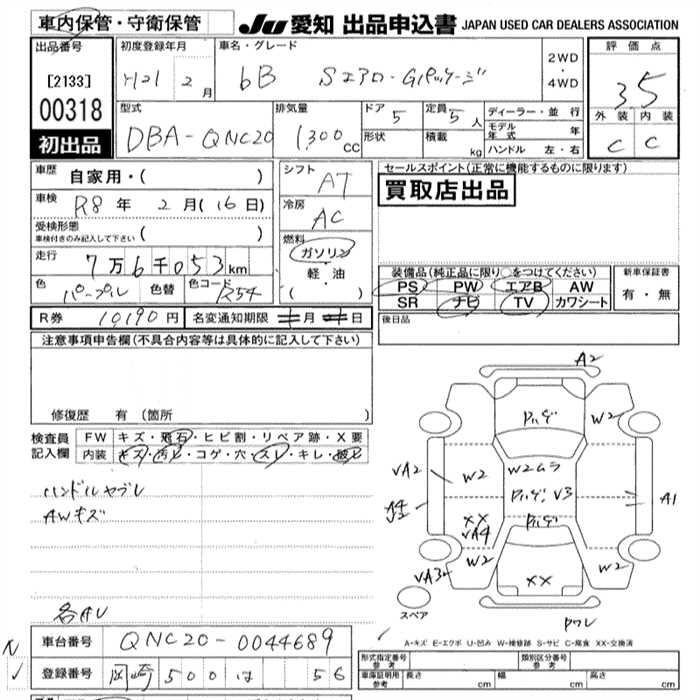 車内保管・守衛保管
JU 愛知 出品申込書 JAPAN USED CAR DEALERS ASSOCIATION
出品番号
[2133]
00318
初出品
初度登録年月
H21 2月
車名・グレード
bB Sエアロ・Gパッケージ
2WD
・
4WD
評価点
3.5
外装 内装
C C
型式
DBA-QNC20
排気量
1,300cc
ドア 5
形状
定員 5人
積載 kg
ディーラー・並行
モデル年式 年
ハンドル 左・右
車歴 自家用・( )
車検 R8年 2月(16日)
受検形態
車検付きのみ記入して下さい ( )
走行 7万6千053km
色 パープル 色替 色コード R54
シフト AT
冷房 AC
燃料
ガソリン
・
軽油
( )
セールスポイント(正常に機能するものに限ります)
買取店出品
装備品(純正品に限り○をつけてください)
PS PW エアB AW
SR ナビ TV カワシート
新車保証書
有・無
R券 10,190円 名変通知期限 月 日
後日品
注意事項申告欄(不具合内容等は具体的に記入して下さい)
修復歴 有(箇所 )
検査員記入欄
FW キズ・飛石・ヒビ割・リペア跡・X要
内装 キズ・汚レ・コゲ・穴・スレ・キレ・破レ
ハンドルヤブレ
AWキズ
各AU
A2
W2
VA2 W2 W2ムラ
A4 A1
V3
XX
VA4
W2 W2
VA3
XX
スペア
A-キズ E-エクボ U-凹み W-補修跡 S-サビ C-腐食 XX-交換済
車台番号 QNC20-0044689
登録番号 岡崎 500 は 56
形式指定番号 参考
類別区分番号 参考
車庫証明用 参考 長さ cm 幅 cm 高さ cm